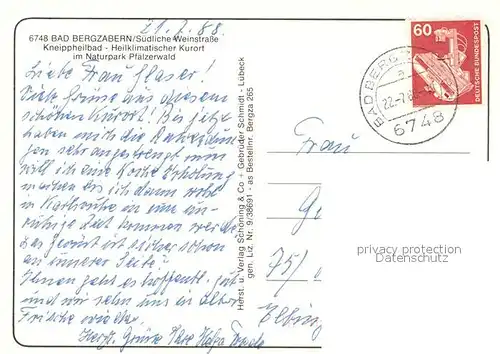 21.7.88.
6748 BAD BERGZABERN/Südliche Weinstraße
Kneippheilbad - Heilklimatischer Kurort
im Naturpark Pfälzerwald
Liebe Frau Glaser!
Viele Grüße aus diesem
schönen Kurort! Bis jetzt
haben mich die Anwendun-
gen sehr angestrengt nun
will ich eine Woche Erholung
machen da ich dann wohl
in Karlsruhe in eine un-
ruhige Zeit kommen werde.
Das Gerüst ist sicher schon
an unserer Seite?
Ihnen geht es hoffentl. gut
und wir sehn uns in alter
Frische wieder.
Herzl. Grüße Ihre
Herst. u. Verlag Schöning & Co - Gebrüder Schmidt - Lübeck
gen. Liz. Nr. 9/38691 - as Bestellnr. Bergza 265
60
DEUTSCHE BUNDESPOST
BAD BERG
22.-7.8
6748
Frau
75/
privacy protection
Datenschutz